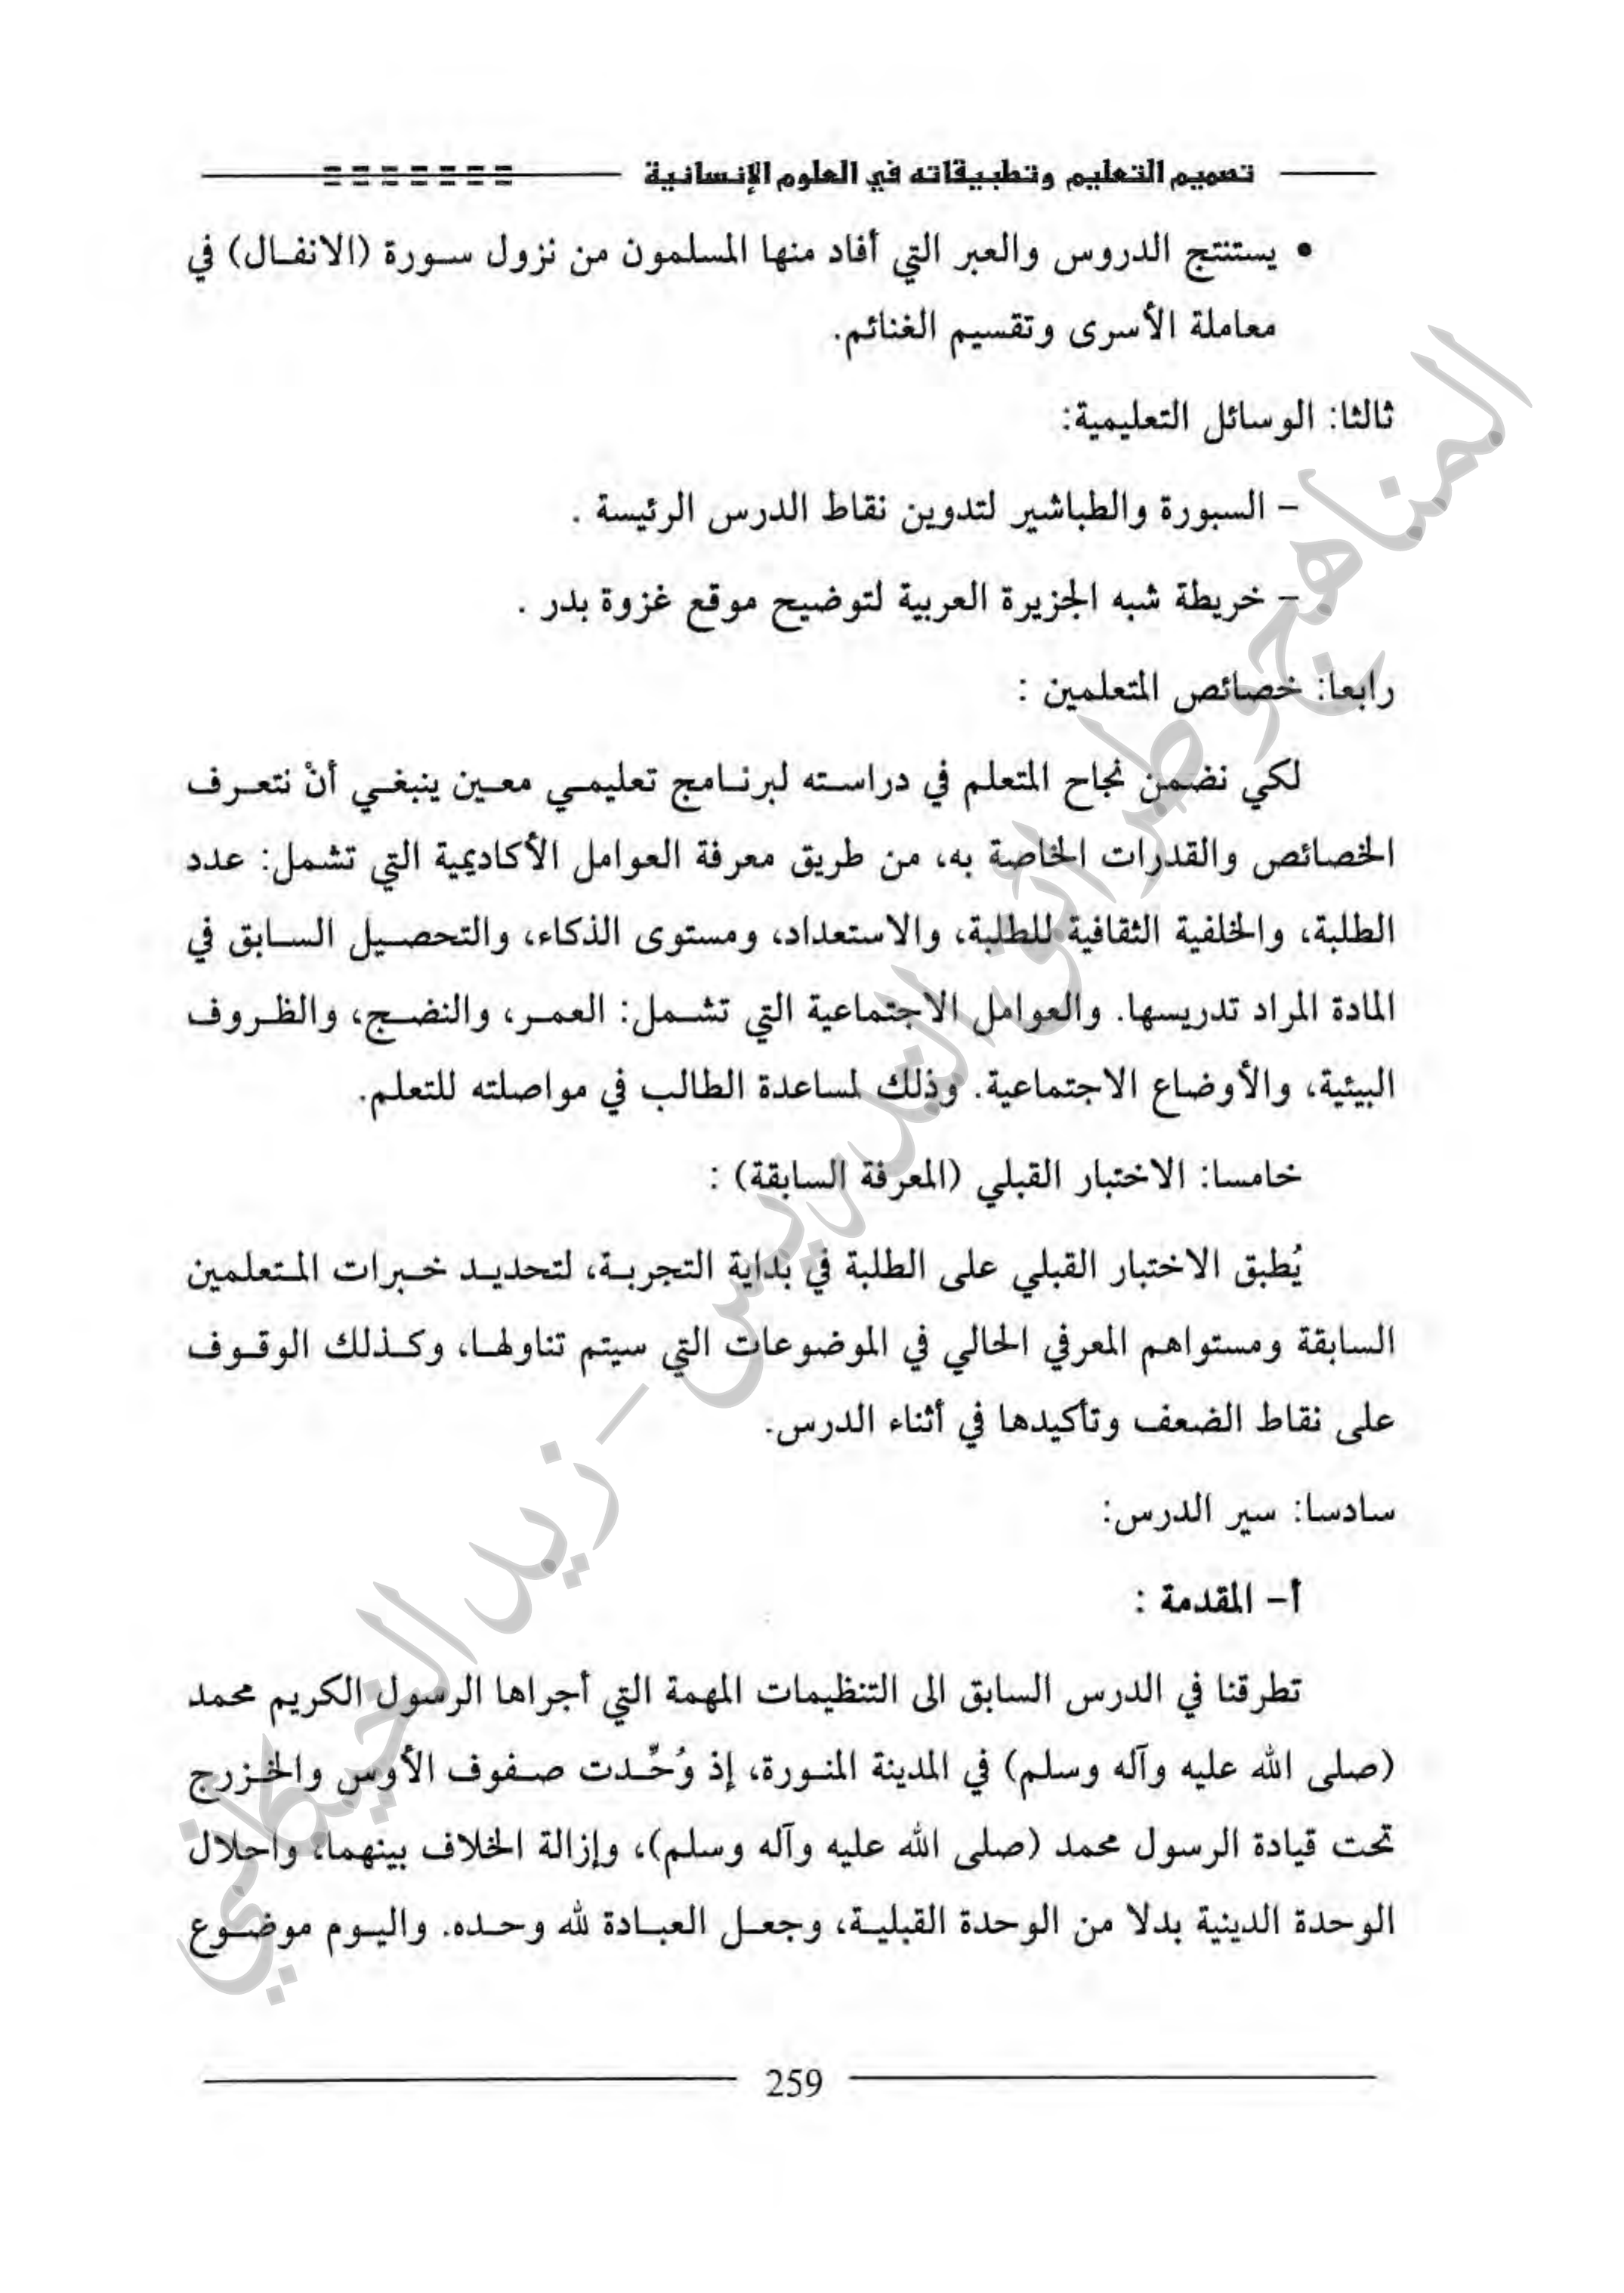 تصميم التعليم وتطبيقاته في العلوم الإنسانية
• يستنتج الدروس والعبر التي أفاد منها المسلمون من نزول سورة (الانفال) في
معاملة الأسرى وتقسيم الغنائم.
ثالثا: الوسائل التعليمية:
– السبورة والطباشير لتدوين نقاط الدرس الرئيسة .
– خريطة شبه الجزيرة العربية لتوضيح موقع غزوة بدر .
رابعا: خصائص المتعلمين :
لكي نضمن نجاح المتعلم في دراسته لبرنامج تعليمي معين ينبغي أنْ نتعرف
الخصائص والقدرات الخاصة به، من طريق معرفة العوامل الأكاديمية التي تشمل: عدد
الطلبة، والخلفية الثقافية للطلبة، والاستعداد، ومستوى الذكاء، والتحصيل السابق في
المادة المراد تدريسها. والعوامل الاجتماعية التي تشمل: العمر، والنضج، والظروف
البيئية، والأوضاع الاجتماعية. وذلك لمساعدة الطالب في مواصلته للتعلم.
خامسا: الاختبار القبلي (المعرفة السابقة) :
يُطبق الاختبار القبلي على الطلبة في بداية التجربة، لتحديد خبرات المتعلمين
السابقة ومستواهم المعرفي الحالي في الموضوعات التي سيتم تناولها، وكذلك الوقوف
على نقاط الضعف وتأكيدها في أثناء الدرس.
سادسا: سير الدرس:
أ– المقدمة :
تطرقنا في الدرس السابق الى التنظيمات المهمة التي أجراها الرسول الكريم محمد
(صلى الله عليه وآله وسلم) في المدينة المنورة، إذ وُحِّدت صفوف الأوس والخزرج
تحت قيادة الرسول محمد (صلى الله عليه وآله وسلم)، وإزالة الخلاف بينهما، واحلال
الوحدة الدينية بدلا من الوحدة القبلية، وجعل العبادة لله وحده. واليوم موضوع
259
المناهج وطرائق التدريس – زيد الخيكاني